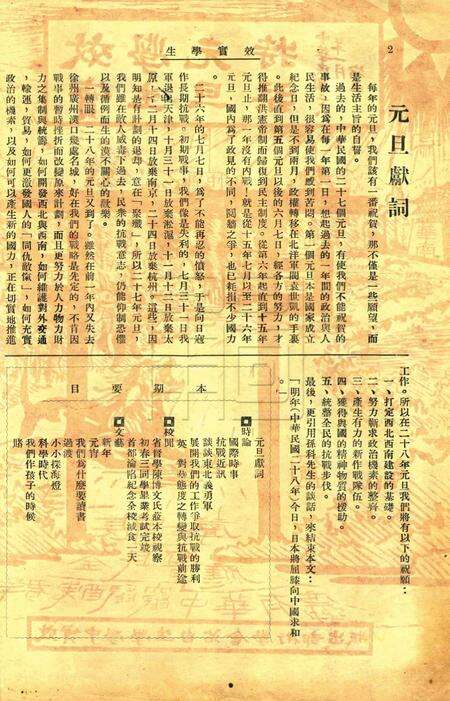 2
效實學生
元旦獻詞
每年的元旦，我們該有一番祝賀，那不僅是一些願望，而
是生活主旨的自督。
過去的，中華民國的二十七個元旦，有使我們不能祝賀的
事故，因爲在每一年第一日，想起過去的一年間的政治與人
民生活，很容易使我們感到苦悶。第一個元旦本是國家成立
紀念日，但是不到兩月，政權轉移在北洋軍閥袁世凱的手裏
。此後直到第五個元旦以後的六月七日，經各方的努力，才
得推翻洪憲帝制而歸復到民主制度。從第六起直到十五年
元旦止，那一年沒有內戰，就是從十五年七月以至二十六年
元旦，國內爲了政見的不同，鬩牆之爭，也已耗損不少國力
。
二十六年的七月七日，爲了不能再忍的憤怒，于是向日寇
作長期抗戰。初期戰事，我們像是失利的，七月三十一日我
軍退出天津，十月三十一日放棄淞滬，十一月十二日放棄太
原，十二月十四日放棄南京，二十四日放棄杭州。這些，因
我們知是有計劃的退却，意在「聚殲」，所以二十七年元旦，
我們雖在敵人威毒下過去，民衆的抗戰意志，仍能抑制恐懼
以及循例而生的漠不關心的歡樂。
一轉眼，二十八年的元旦又到了。雖然在前一年內又失去
徐州廣州漢口幾處名城，好在我們的戰略是先定的，不肯因
戰事的暫時挫折而改變原來計劃，而且更努力於人力物力財
力之集制與統籌，如何開發西北與西南，如何維護對外交通
，輸運，貿易，如何更激發國人的「同仇敵愾」，如何充實
政治的機素，以及如何可以產生新的國力，正在切實地推進
工作。所以在二十八年元旦我們將有以下的祝願：
一、打定西北西南建設的基礎。
二、努力蘄求政治機素的整齊。
三、產生有力的新作戰隊伍。
四、獲得與國的精神物質的援助。
五、統整全民的抗戰步伐。
最後，更引用孫科先生的談話，來結束本文：
「明年（中華民國二十八年）今日，日本將屈膝向中國求和
本期要目
時論
元旦獻詞
國際時事
抗戰近訊
談談東北義勇軍
展開我們的工作爭取抗戰的勝利
英、對慈態度之轉變與抗戰前途
校聞
省督學陳博文氏蒞本校視察
初春三同學畢業考試完竣
首都淪陷紀念全校減食一天
文藝
新年
元宵
我們爲什麼要讀書
過渡
小小採海燈
科學時代
我們作孩子的時候
賭